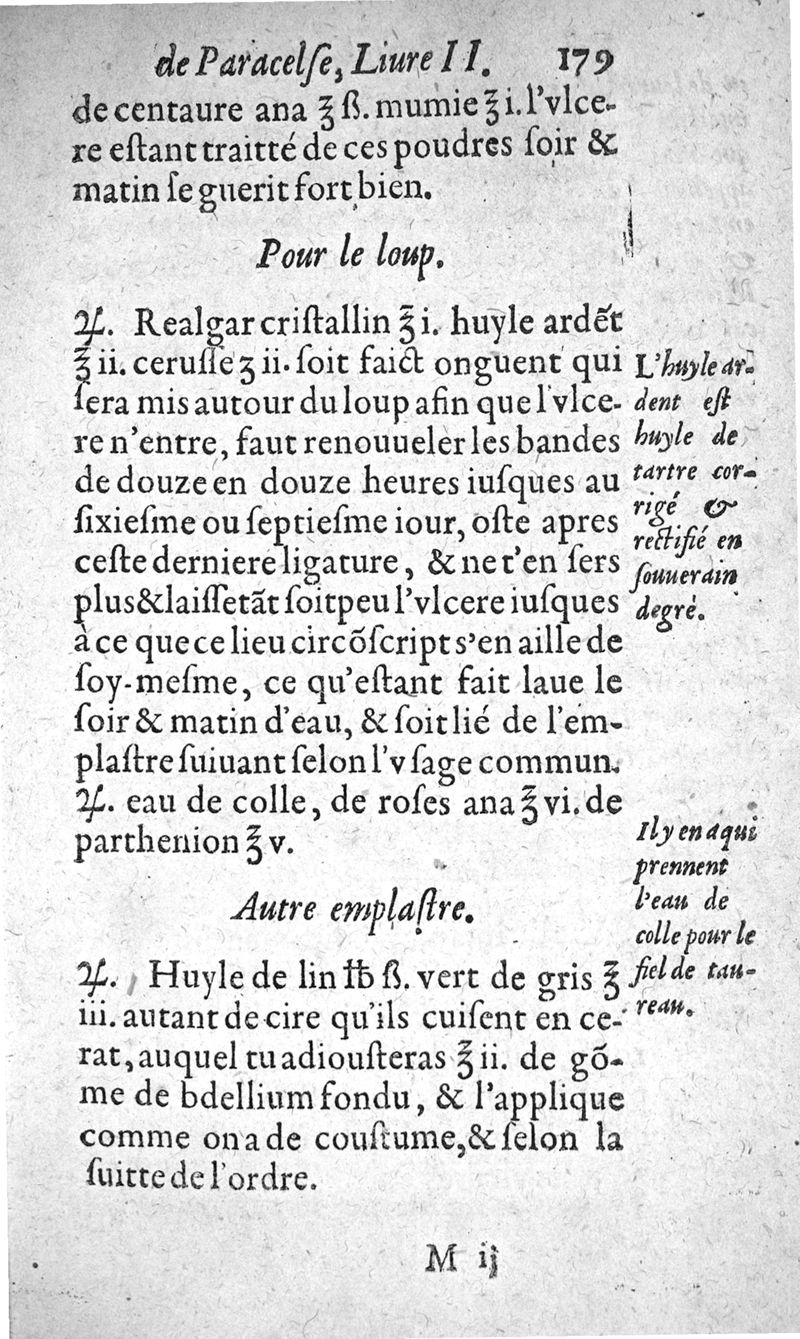 de Paracelſe, Liure II. 179
de centaure ana ℥ ß. mumie ℥ i. l'vlce-
re eſtant traitté de ces poudres ſoir &
matin ſe guerit fort bien.
Pour le loup.
♃. Realgar criſtallin ℥ i. huyle ardẽt
℥ ii. ceruſſe ʒ ii. ſoit faict onguent qui
ſera mis autour du loup afin que l'vlce-
re n'entre, faut renouueler les bandes
de douze en douze heures iuſques au
ſixieſme ou ſeptieſme iour, oſte apres
ceſte derniere ligature, & ne t'en ſers
plus & laiſſe tãt ſoit peu l'vlcere iuſques
à ce que ce lieu circõſcript s'en aille de
ſoy-meſme, ce qu'eſtant fait laue le
ſoir & matin d'eau, & ſoit lié de l'em-
plaſtre ſuiuant ſelon l'vſage commun.
♃. eau de colle, de roſes ana ℥ vi. de
parthenion ℥ v.
L'huyle ar-
dent eſt
huyle de
tartre cor-
rigé &
rectifié en
ſouuerain
degré.
Autre emplaſtre.
♃. Huyle de lin ℔ ß. vert de gris ℥
iii. autant de cire qu'ils cuiſent en ce-
rat, auquel tu adiouſteras ℥ ii. de gõ-
me de bdellium fondu, & l'applique
comme on a de couſtume, & ſelon la
ſuitte de l'ordre.
Il y en a qui
prennent
l'eau de
colle pour le
fiel de tau-
reau.
M ij